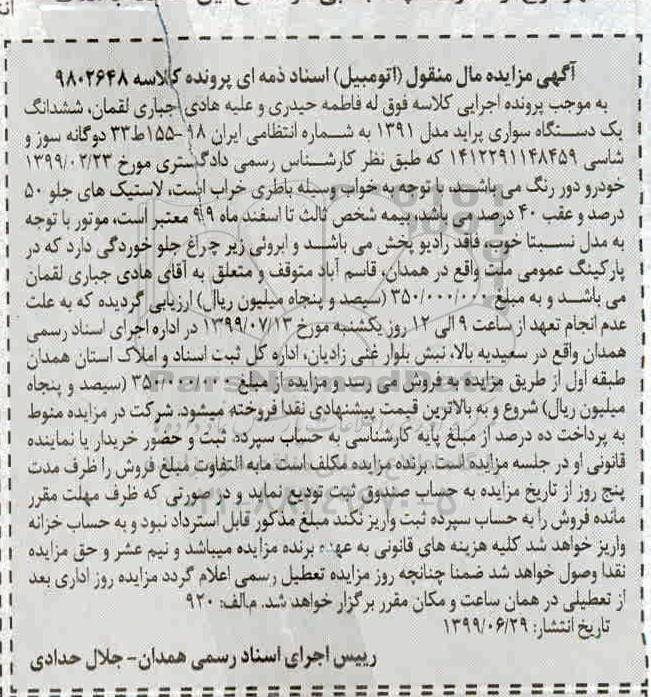 آگهی مزایده مال منقول (اتومبیل) اسناد ذمه ای پرونده کلاسه ۹۸۰۲۶۴۸
به موجب پرونده اجرایی کلاسه فوق له فاطمه حیدری و علیه هادی جباری لقمان، ششدانگ
یک دستگاه سواری پراید مدل ۱۳۹۱ به شماره انتظامی ایران ۹۸-۱۵۵ط۳۳ دوگانه سوز و
شاسی ۱۴۱۲۲۹۱۱۴۸۴۵۹ که طبق نظر کارشناس رسمی دادگستری مورخ ۱۳۹۹/۰۲/۲۳
خودرو دور رنگ می باشد، با توجه به خواب وسیله باطری خراب است، لاستیک های جلو ۵۰
درصد و عقب ۴۰ درصد می باشد، بیمه شخص ثالث تا اسفند ماه ۹۹ معتبر است، موتور با توجه
به مدل نسبتا خوب، فاقد رادیو پخش می باشد و ابروئی زیر چراغ جلو خوردگی دارد که در
پارکینگ عمومی ملت واقع در همدان، قاسم آباد متوقف و متعلق به آقای هادی جباری لقمان
می باشد و به مبلغ ۳۵۰/۰۰۰/۰۰۰ (سیصد و پنجاه میلیون ریال) ارزیابی گردیده که به علت
عدم انجام تعهد از ساعت ۹ الی ۱۲ روز یکشنبه مورخ ۱۳۹۹/۰۷/۱۳ در اداره اجرای اسناد رسمی
همدان واقع در سعیدیه بالا، نبش بلوار غنی زادیان، اداره کل ثبت اسناد و املاک استان همدان
طبقه اول از طریق مزایده به فروش می رسد و مزایده از مبلغ ۳۵۰/۰۰۰/۰۰۰ (سیصد و پنجاه
میلیون ریال) شروع و به بالاترین قیمت پیشنهادی نقدا فروخته میشود. شرکت در مزایده منوط
به پرداخت ده درصد از مبلغ پایه کارشناسی به حساب سپرده ثبت و حضور خریدار یا نماینده
قانونی او در جلسه مزایده است. برنده مزایده مکلف است مابه التفاوت مبلغ فروش را ظرف مدت
پنج روز از تاریخ مزایده به حساب صندوق ثبت تودیع نماید و در صورتی که ظرف مهلت مقرر
مانده فروش را به حساب سپرده ثبت واریز نکند مبلغ مذکور قابل استرداد نبود و به حساب خزانه
واریز خواهد شد کلیه هزینه های قانونی به عهده برنده مزایده میباشد و نیم عشر و حق مزایده
نقدا وصول خواهد شد ضمنا چنانچه روز مزایده تعطیل رسمی اعلام گردد مزایده روز اداری بعد
از تعطیلی در همان ساعت و مکان مقرر برگزار خواهد شد. م.الف: ۹۲۰
تاریخ انتشار: ۱۳۹۹/۰۶/۲۹
رییس اجرای اسناد رسمی همدان- جلال حدادی